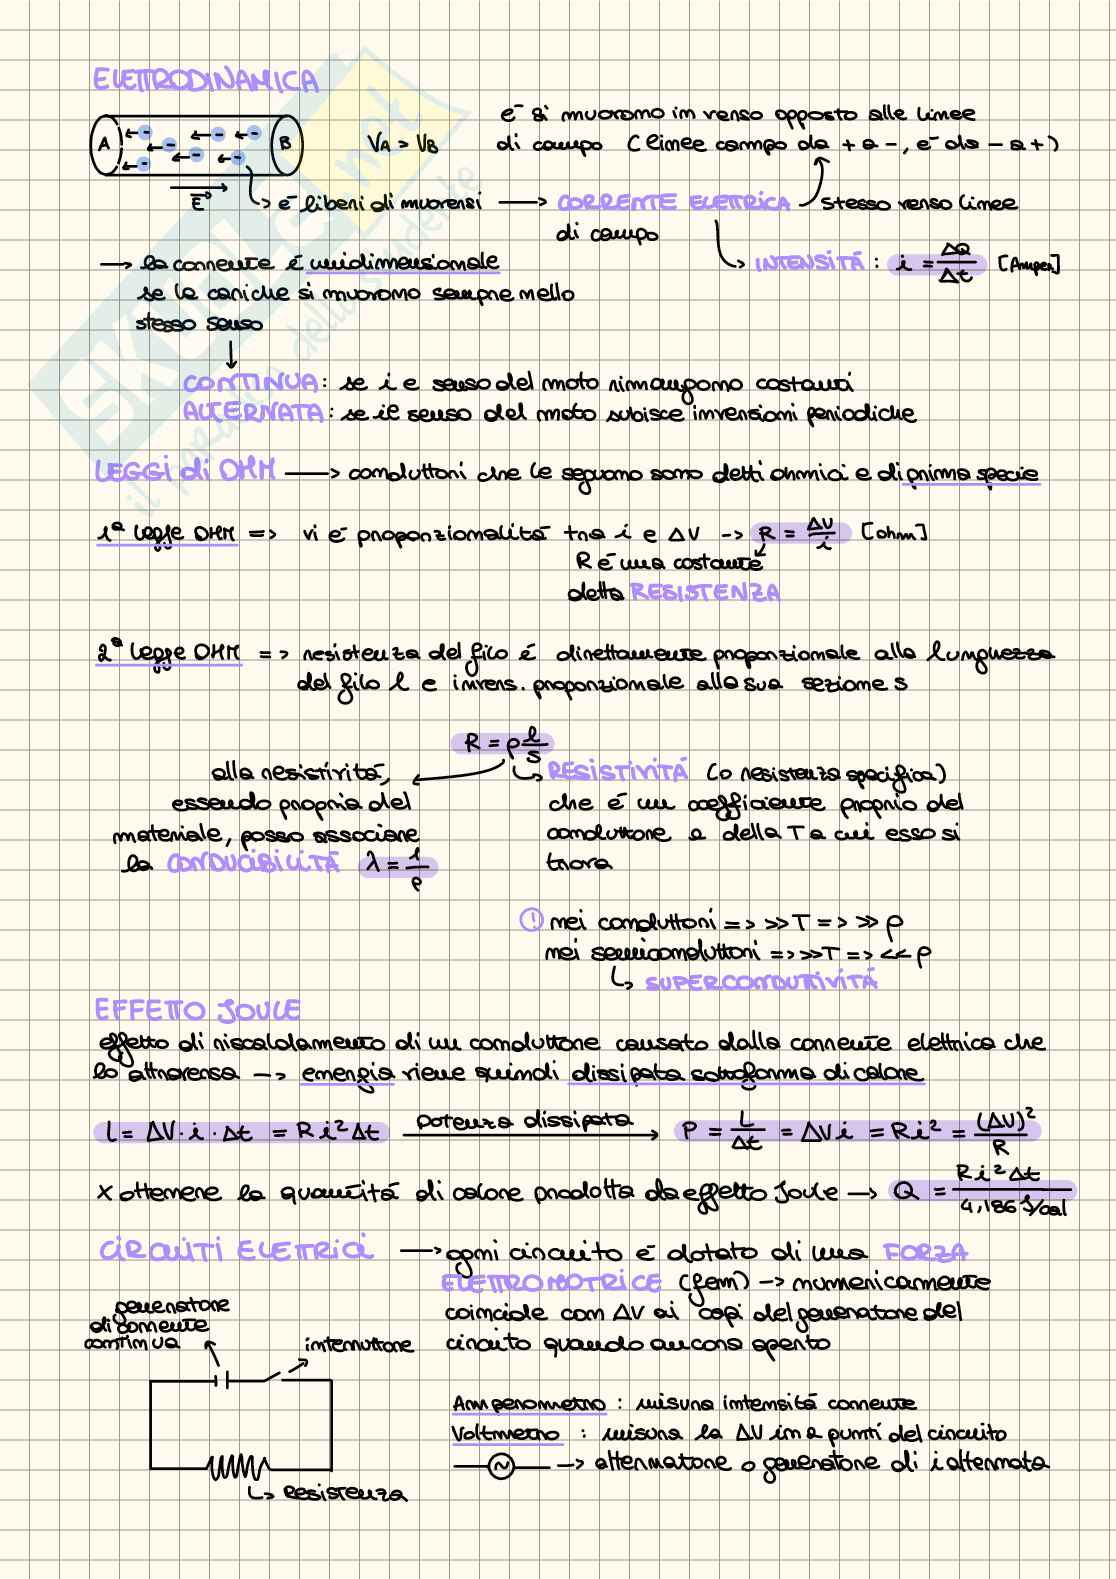 ELETTRODINAMICA
e⁻ si muovono in verso opposto alle linee
A B VA > VB di campo (linee campo da + a -, e⁻ da - a +)
E → e⁻ liberi di muoversi → CORRENTE ELETTRICA → stesso verso linee
di campo
→ la corrente é unidimensionale → INTENSITÁ : i = ΔQ/Δt [Amper]
se le cariche si muovono sempre nello
stesso senso
CONTINUA: se i e senso del moto rimangono costanti
ALTERNATA: se il senso del moto subisce inversioni periodiche
LEGGI di OHM → conduttori che le seguono sono detti ohmici e di prima specie
1ª legge OHM => vi é proporzionalitá tra i e ΔV -> R = ΔV/i [ohm]
R é una costante
detta RESISTENZA
2ª legge OHM => resistenza del filo é direttamente proporzionale alla lunghezza
del filo l e invers. proporzionale alla sua sezione s
R = ρ l/s
alla resistivitá, RESISTIVITÁ (o resistenza specifica)
essendo propria del che é un coefficiente proprio del
materiale, posso associare conduttore e della T a cui esso si
la CONDUCIBILITÁ λ = 1/ρ trova
! nei conduttori => >>T => >> ρ
nei semiconduttori => >>T => << ρ
SUPERCONDUTTIVITÁ
EFFETTO JOULE
effetto di riscaldamento di un conduttore causato dalla corrente elettrica che
lo attraversa -> energia viene quindi dissipata sottoforma di calore
L = ΔV · i · Δt = R i² Δt potenza dissipata → P = L/Δt = ΔV i = R i² = (ΔV)²/R
x ottenere la quantitá di calore prodotta da effetto Joule → Q = R i² Δt / 4,186 J/cal
CIRCUITI ELETTRICI → ogni circuito é dotato di una FORZA
ELETTROMOTRICE (fem) -> numericamente
coincide con ΔV ai capi del generatore del
circuito quando ancora aperto
generatore
di corrente
continua
interruttore
Resistenza
Amperometro : misura intensitá corrente
Voltmetro : misura la ΔV in 2 punti del circuito
~ -> alternatore o generatore di i alternata
SKUOLA.net
il paradiso dello studente